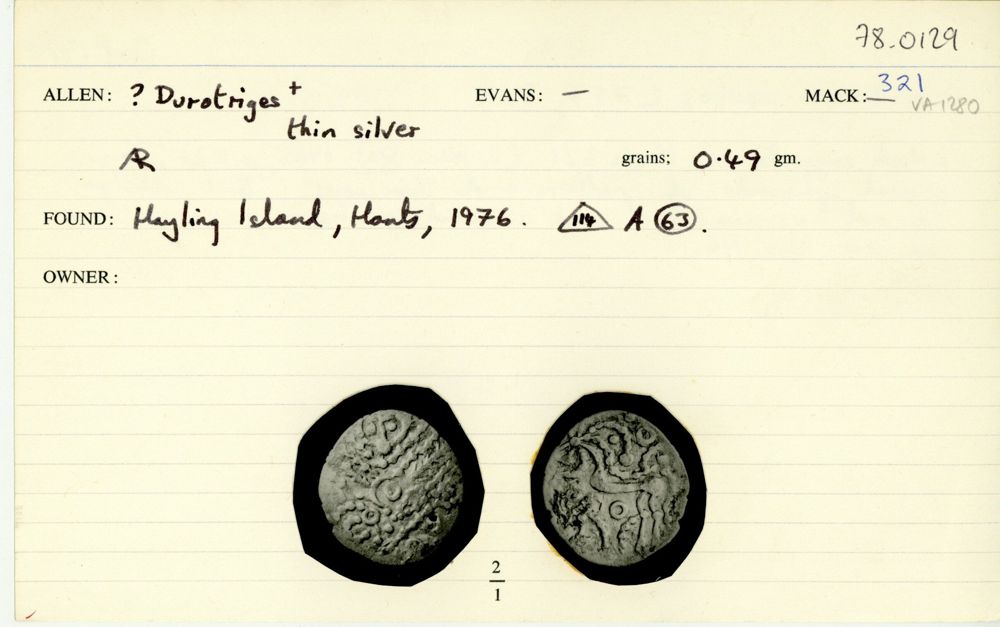 78.0129
ALLEN: ? Durotriges + EVANS: — MACK: — 321 VA1280
thin silver
AR grains; 0.49 gm.
FOUND: Hayling Island, Hants, 1976. 114 A 63.
OWNER:
2
1